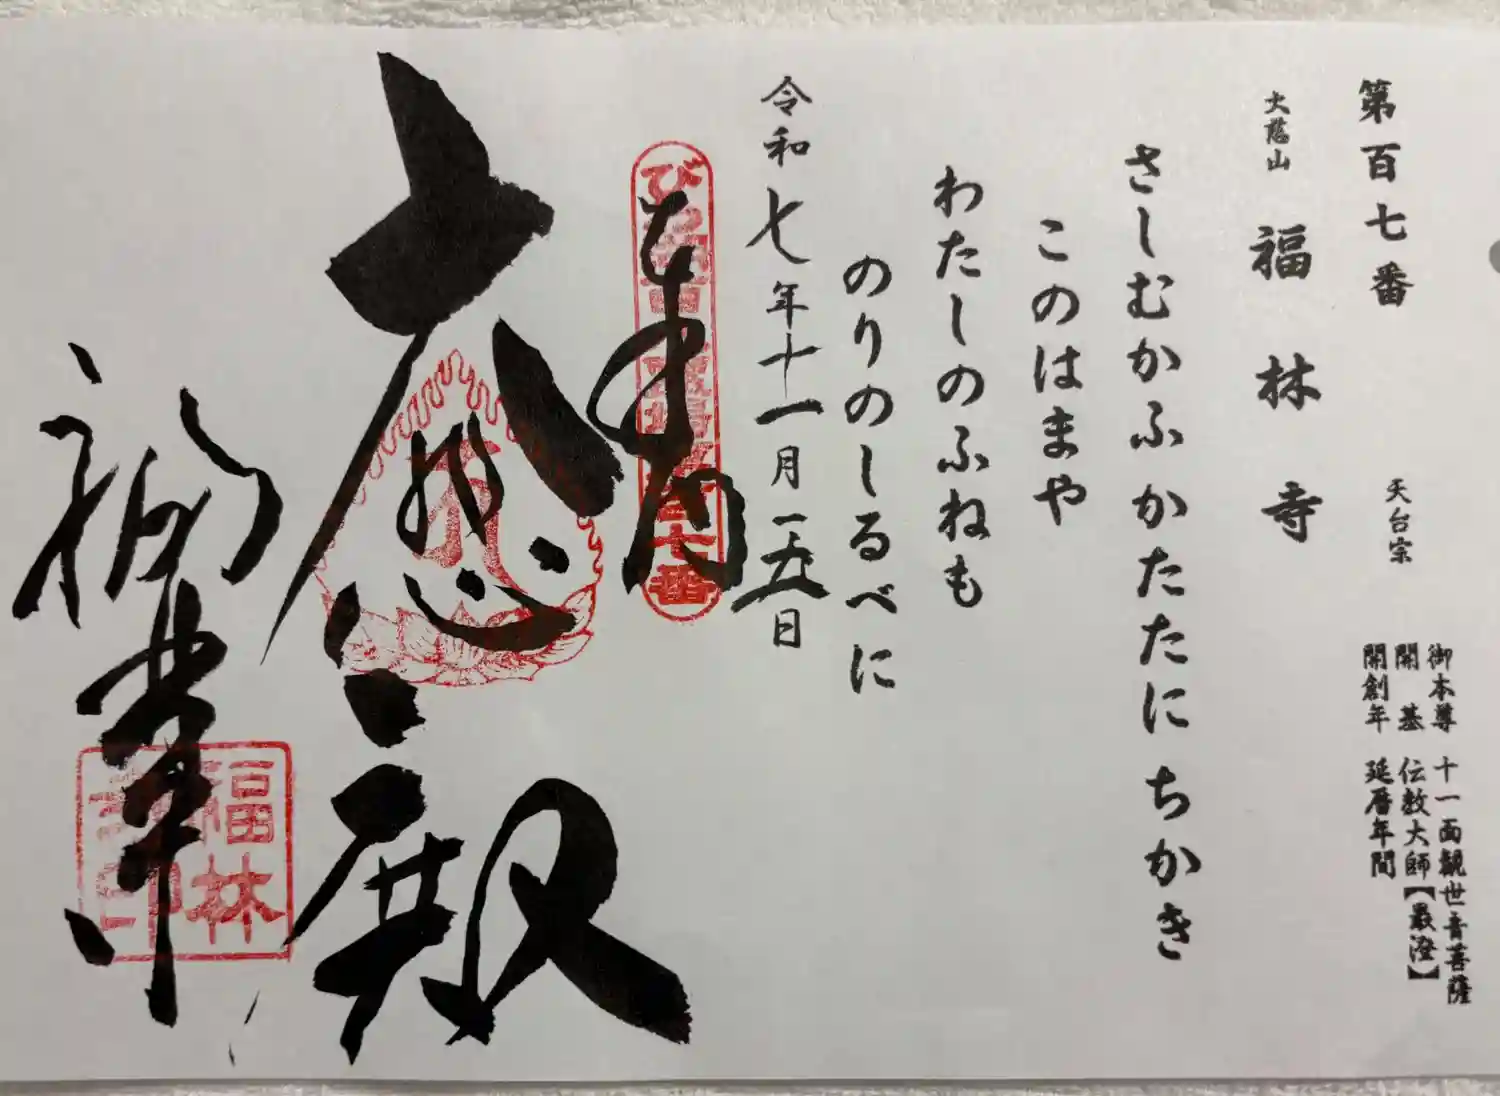 第百七番
天台宗
大慈山 福林寺
御本尊 十一面観世音菩薩
開基 伝教大師【最澄】
開創年 延暦年間
さしむかふ かたたに ちかき
このはまや
わたしのふねも
のりのしるべに
令和七年十一月一五日
奉拝
大悲殿
福林寺
福林
印